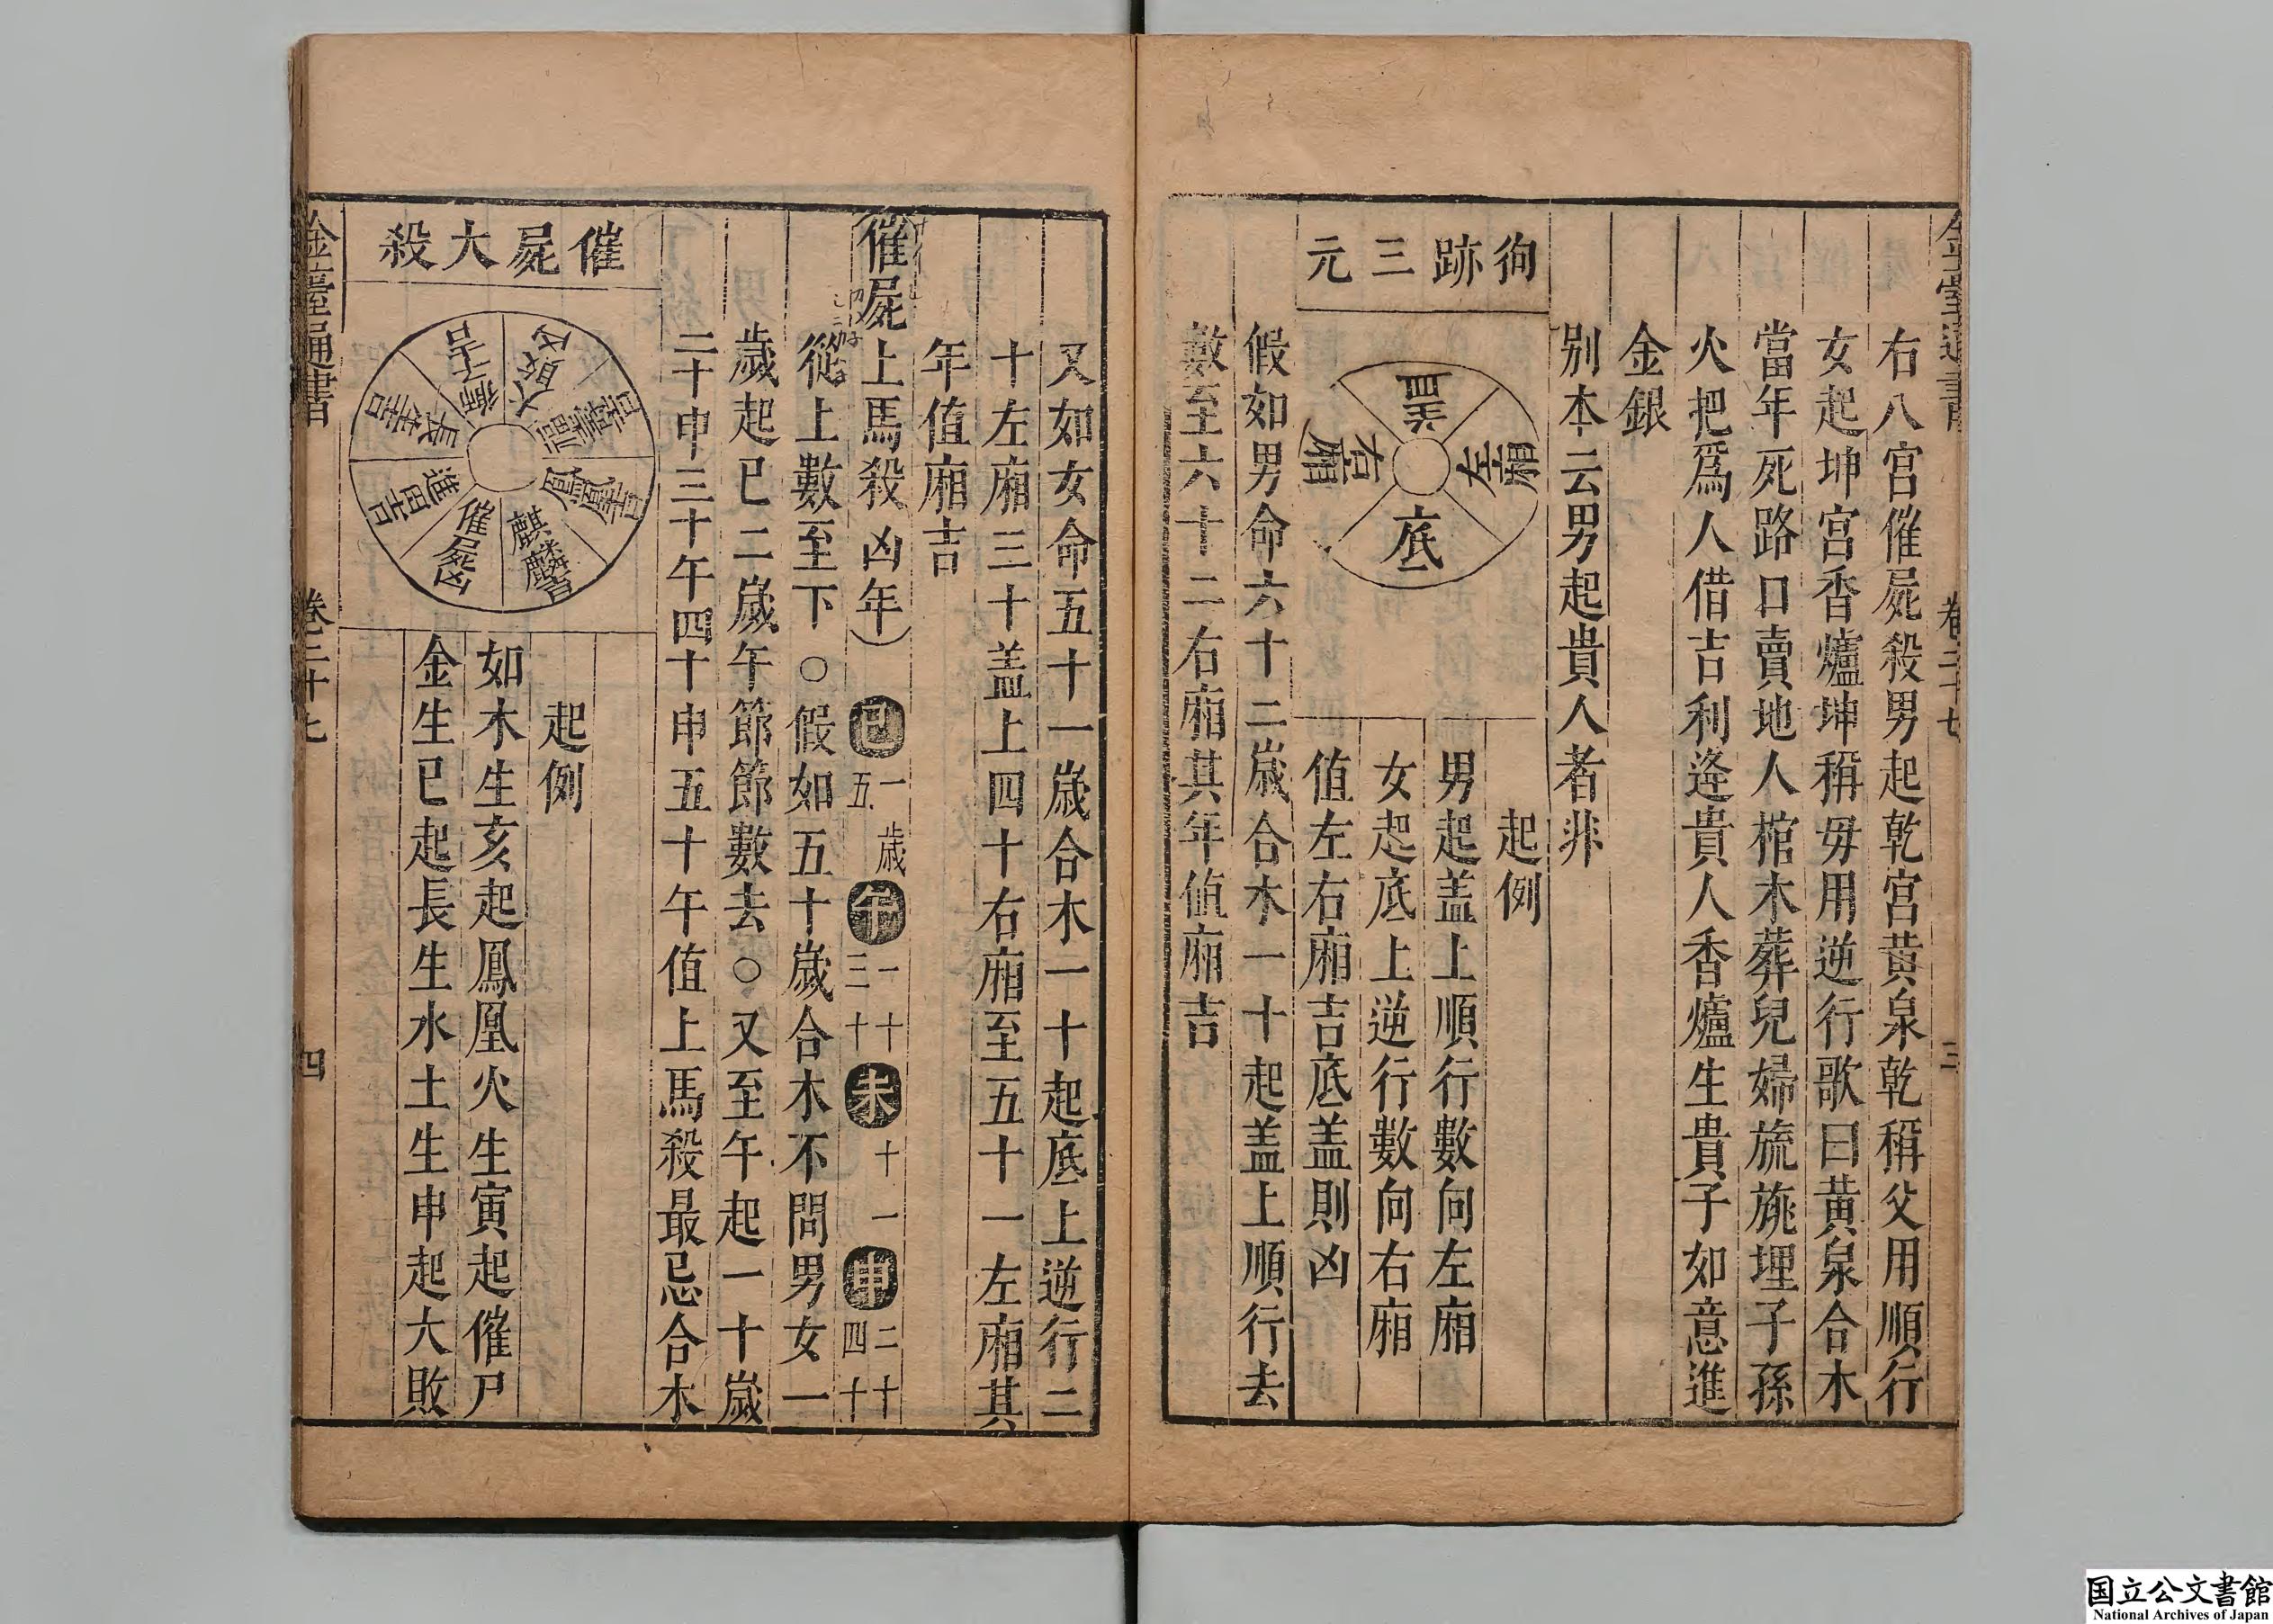 右八宮催屍殺男起乾宮黄泉乾稱父用順行
女起坤宮香爐坤稱毋用逆行歌曰黄泉合木
當年死路口賣地人棺木葬兒婦旒旐埋子孫
火把爲人借吉利逄貴人香爐生貴子如意進
金銀
別本云男起貴人者非
徇跡三元
蓋
左廂
右廂
底
起例
男起盖上順行數向左廂
女起底上逆行數向右廂
值左右廂吉底盖則凶
假如男命六十二歲合木一十起盖上順行去
數至六十二右廂其年值廂吉
又如女命五十一歲合木一十起底上逆行二
十左廂三十盖上四十右廂至五十一左廂其
年值廂吉
催屍上馬殺凶年
一歲
五
午
一十
三十
未
十一
申
二十
四十
從上數至下○假如五十歲合木不問男女一
歲起巳二歲午節節數去○又至午起一十歲
二十申三十午四十申五十午值上馬殺最忌合木
催屍大殺
麒麟吉
催屍凶
進田吉
長生吉
大敗凶
起例
如木生亥起鳳凰火生寅起催尸
金生巳起長生水土生申起大敗
金臺通書
卷二十七
四
国立公文書館
National Archives of Japan